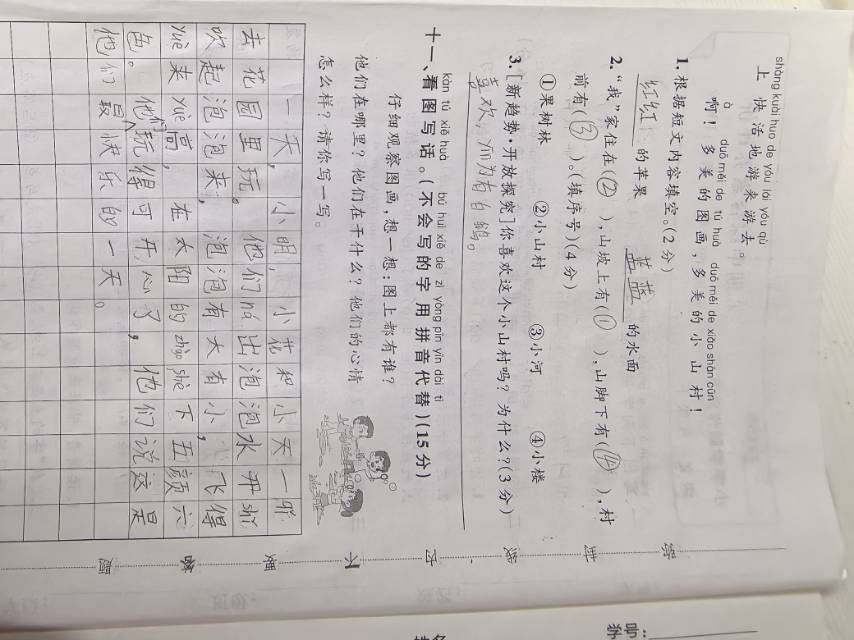 shàng kuài huo de yóu lái yóu qù
上快活地游来游去。
à duō měi de tú huà duō měi de xiǎo shān cūn
啊！多美的图画，多美的小山村！
1. 根据短文内容填空。(2分)
红红 的苹果 蓝蓝 的水面
2. “我”家住在(②)，山坡上有(①)，山脚下有(④)，村
前有(③)。(填序号)(4分)
①果树林 ②小山村 ③小河 ④小楼
3. [新趋势·开放探究]你喜欢这个小山村吗？为什么？(3分)
喜欢，yīn为有白鹅。
kàn tú xiě huà bú huì xiě de zì yòng pīn yīn dài tì
十一、看图写话。(不会写的字用拼音代替)(15分)
仔细观察图画，想一想：图上都有谁？
他们在哪里？他们在干什么？他们的心情
怎么样？请你写一写。
一天，小明，小花和小天一起
去花园里玩。他们ná出泡泡水开shǐ
吹起泡泡来，泡泡有大有小，飞得
yuè来yuè高，在太阳的zhào shè下五颜六
色。他们玩得可开心了，他们说这是
他们最快乐的一天。